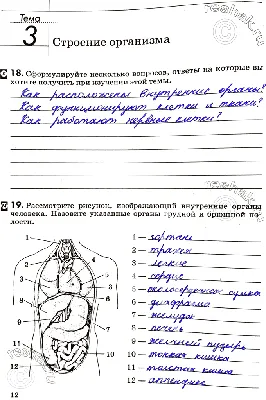 Тема
3 Строение организма
18. Сформулируйте несколько вопросов, ответы на которые вы
хотите получить при изучении этой темы.
Как расположены внутренние органы?
Как функционируют клетки и ткани?
Как работают нервные клетки?
19. Рассмотрите рисунок, изображающий внутренние органы
человека. Назовите указанные органы грудной и брюшной по-
лости.
1 — гортань
2 — трахея
3 — легкие
4 — сердце
5 — околосердечная сумка
6 — диафрагма
7 — желудок
8 — печень
9 — желчный пузырь
10 — тонкая кишка
11 — толстая кишка
12 — аппендикс
1
2
3
4
5
6
7
8
9
10
11
12
12